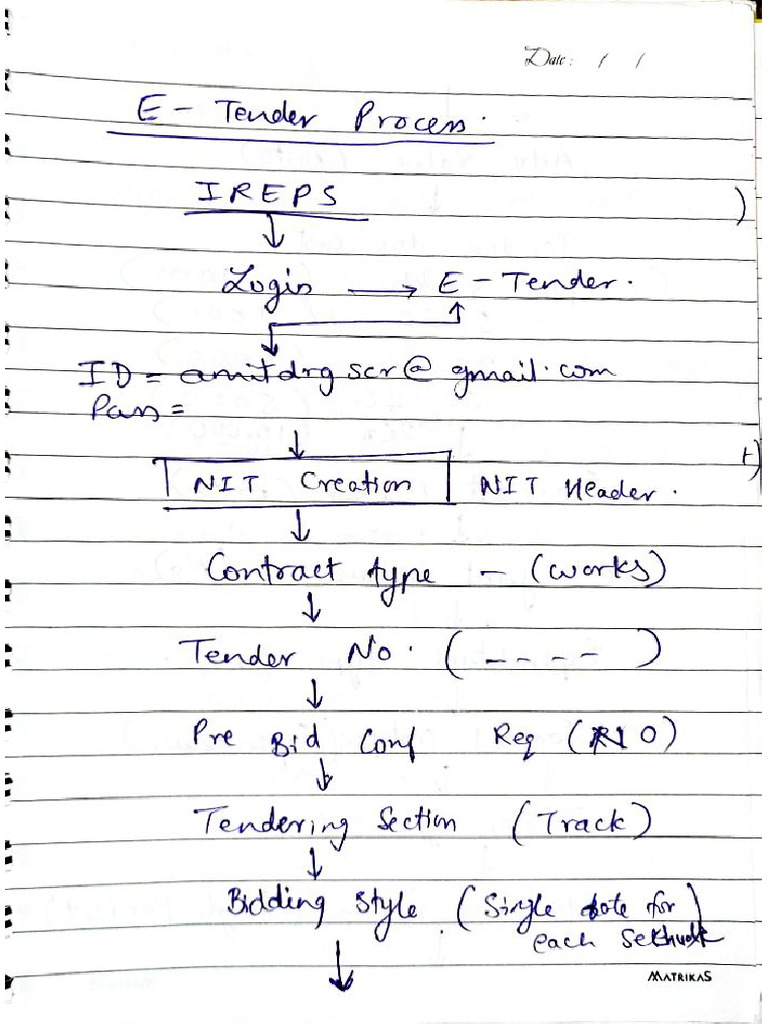 Date: / /
E - Tender Process.
IREPS
Login → E - Tender.
ID = amitdrgscr@gmail.com
Pass =
NIT Creation NIT Header.
Contract type - (works)
Tender No. (----)
Pre Bid Conf Req (NO)
Tendering Section (Track)
Bidding Style (Single for)
each
MATRIKAS